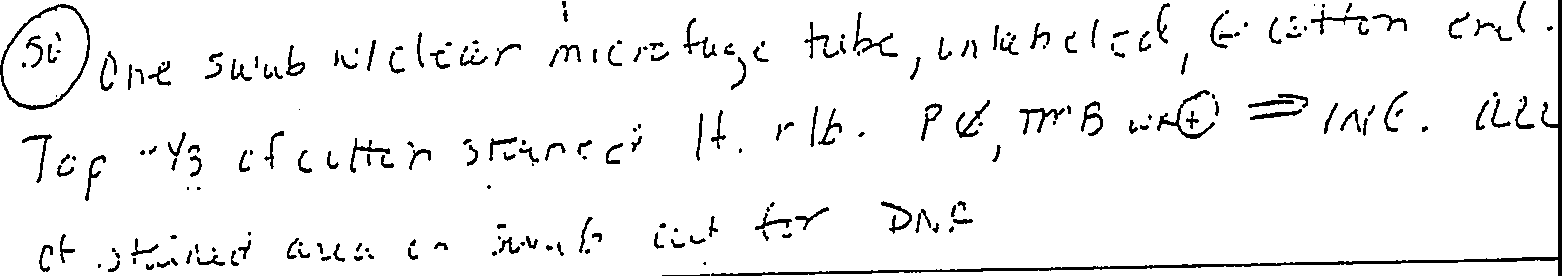 One swab w/ clear microfuge tube, unlabeled, @ cotton end.
Top ~1/3 of cotton stained lt. r/b. PØ, TMB wk⊕ ⇒ INC. ALL
of stained area on swab cut for DNA